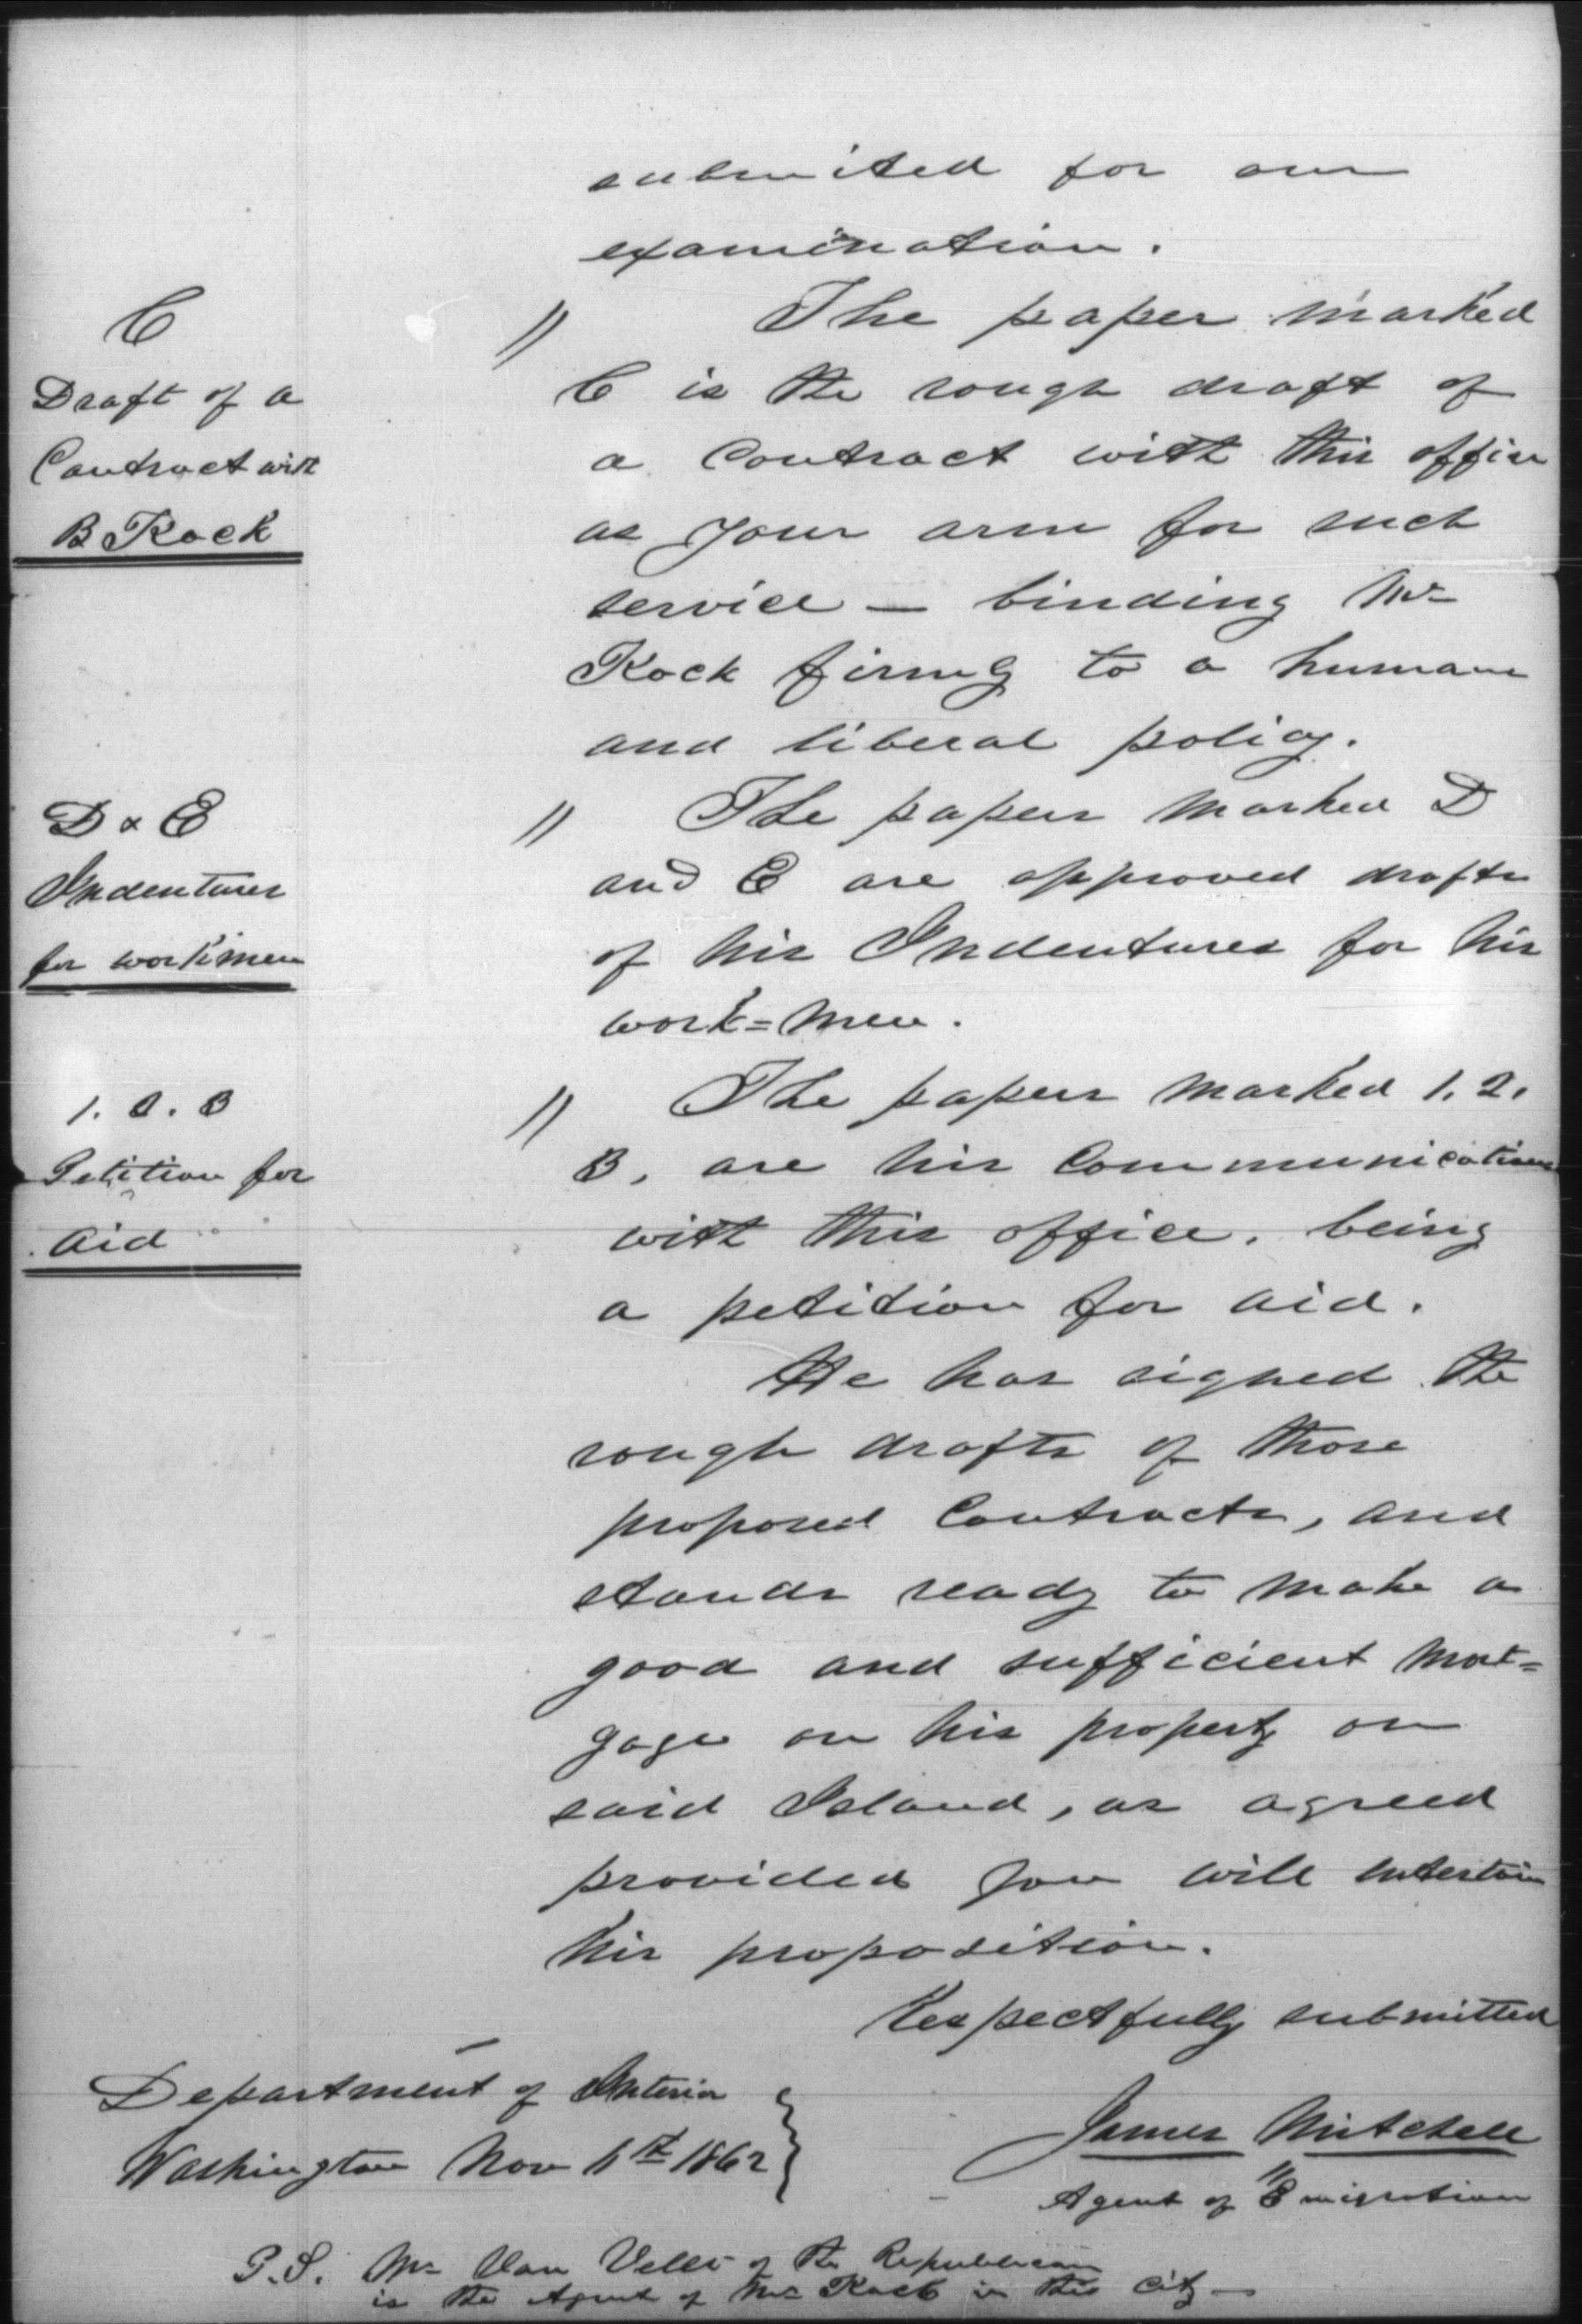 submitted for our
examination.
C
Draft of a
Contract with
B Kock
" The paper marked
C is the rough draft of
a Contract with this office
as your arm for such
service — binding Mr
Kock firmly to a humane
and liberal policy.
D & E
Indentures
for workmen
" The papers marked D
and E are approved drafts
of his Indentures for his
work=men.
1. 2. B
Petition for
aid
" The papers marked 1. 2.
B, are his Communications
with this office, being
a petition for aid.
He has signed the
rough drafts of those
proposed Contracts, and
stands ready to make a
good and sufficient Mort=
gage on his property on
said Island, as agreed
provided you will entertain
his proposition.
Respectfully submitted
James Mitchell
Agent of Emigration
Department of Interior
Washington Nov 1862
P.S. Mr Van of the Republican
is the Agent of Mr Kock in this City —